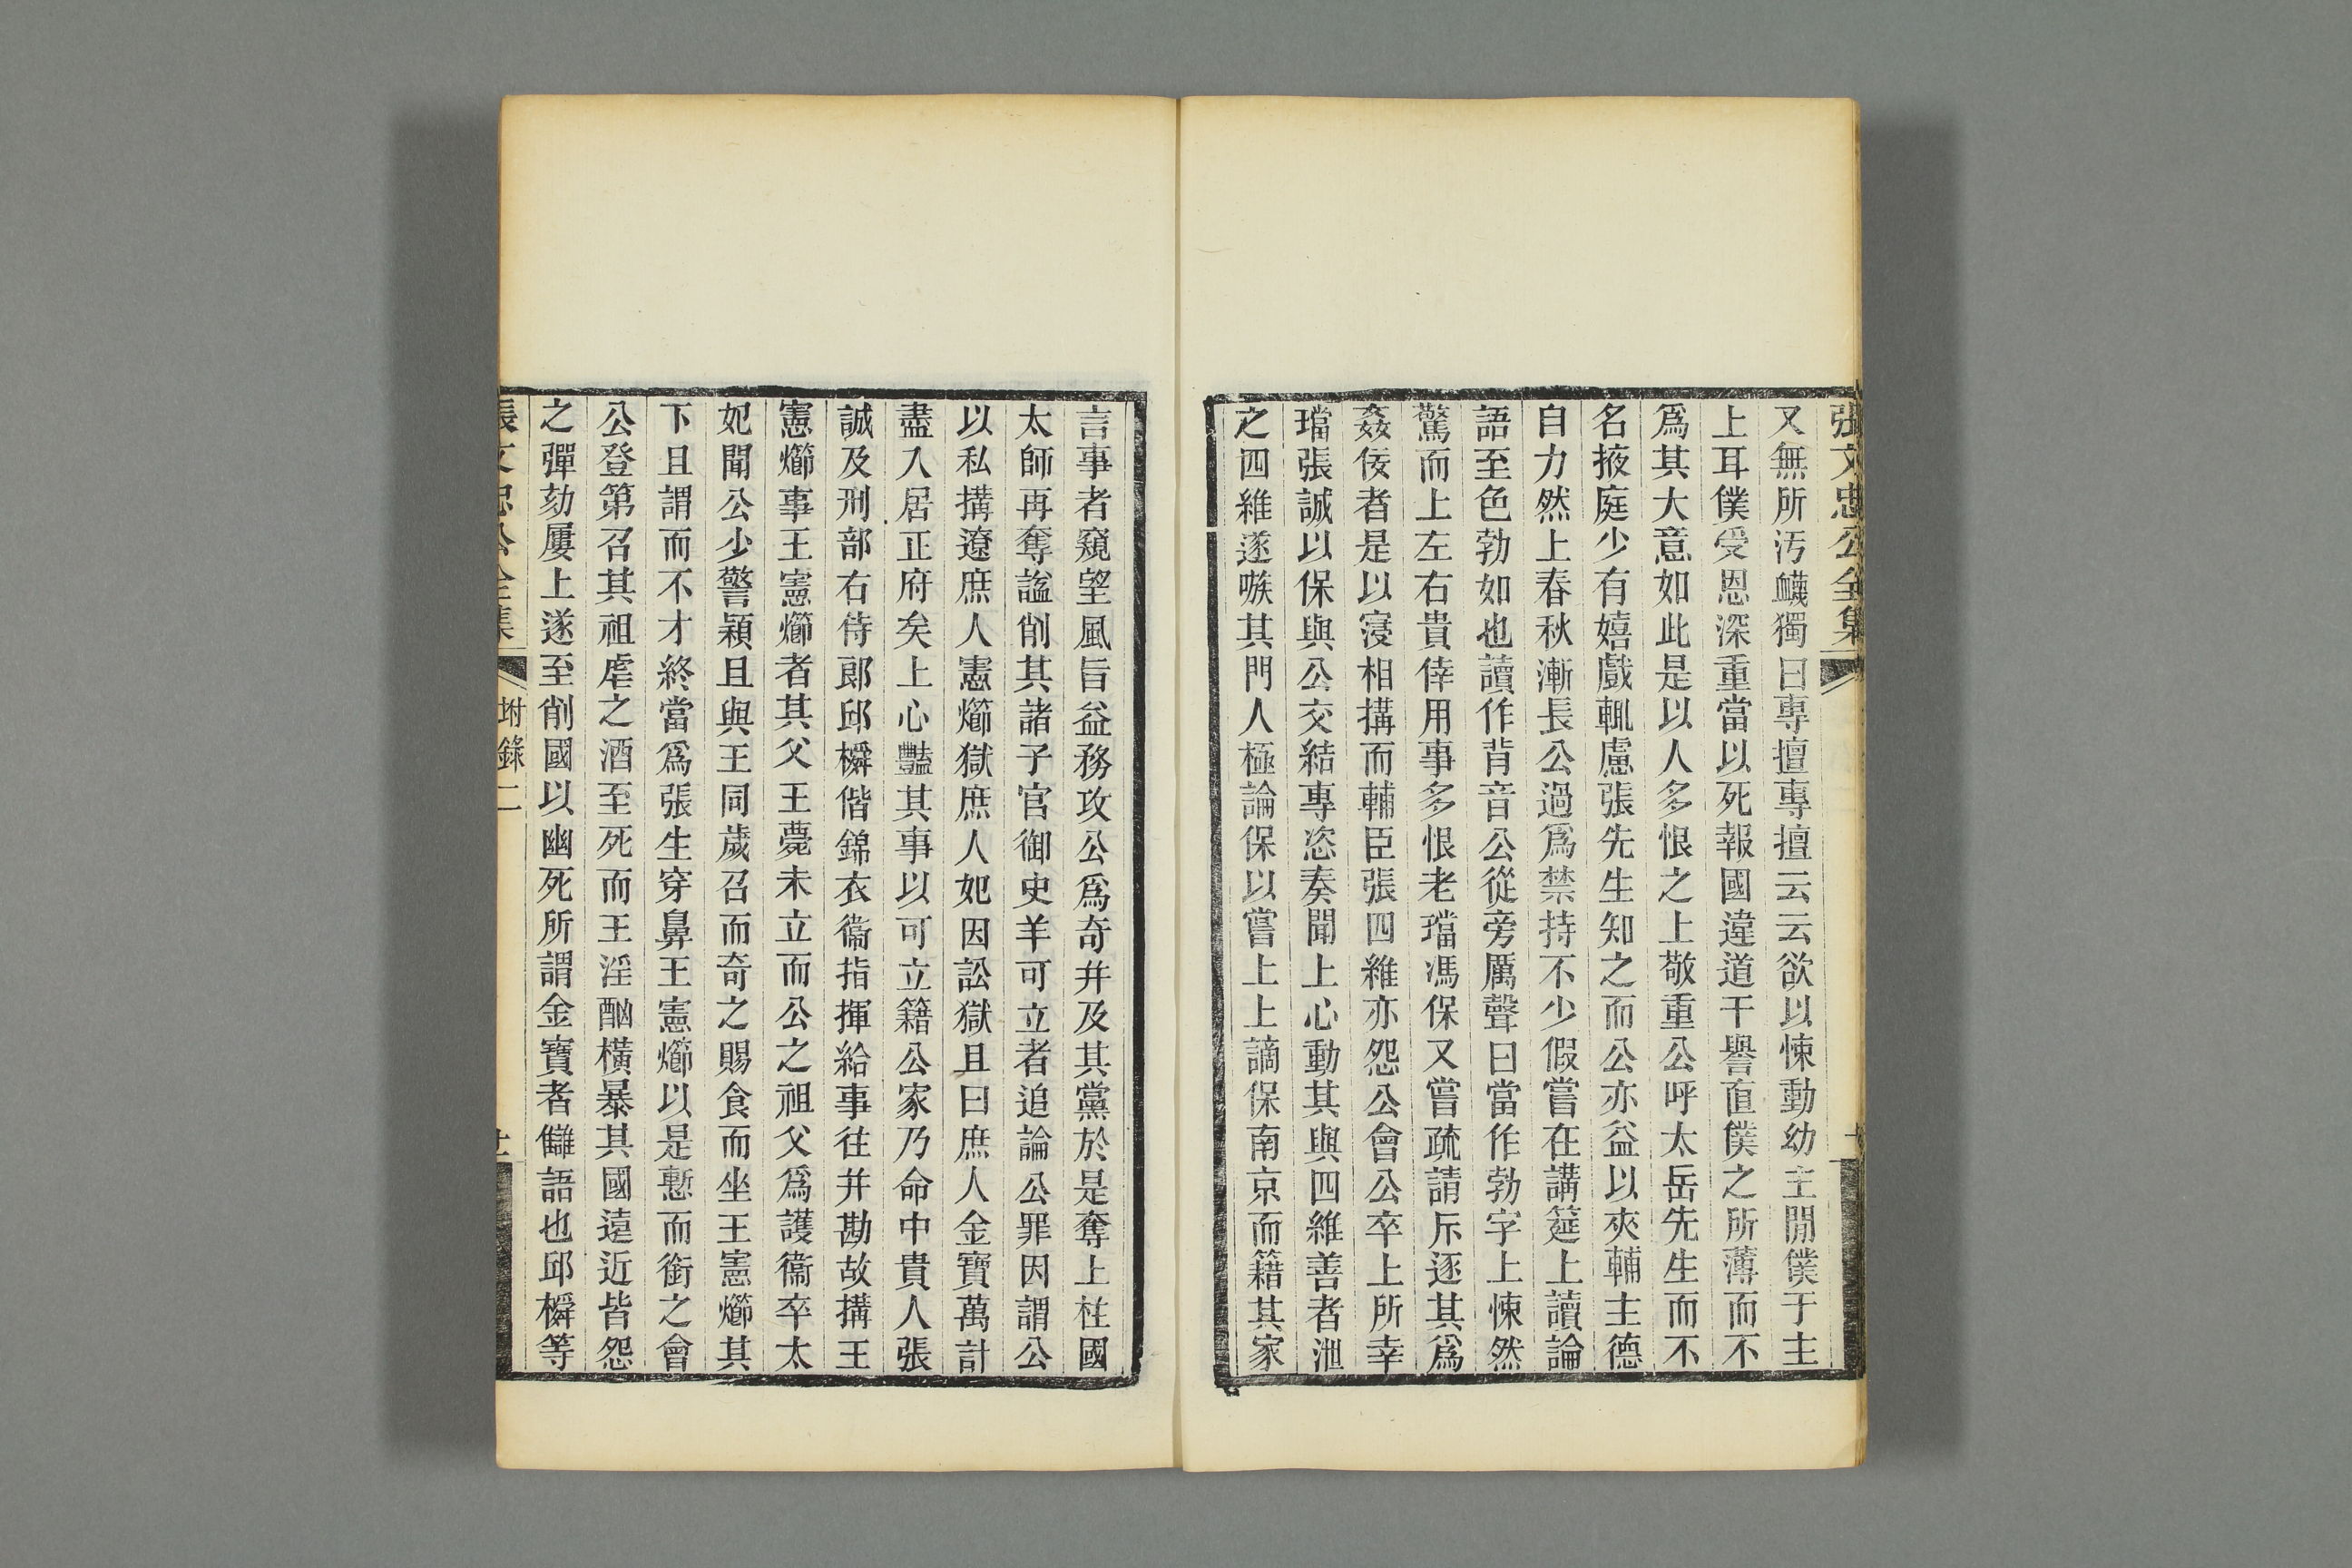 張文忠公全集
又無所汚衊獨曰專擅專擅云云欲以悚動幼主閒僕于主
上耳僕受恩深重當以死報國違道干譽直僕之所薄而不
爲其大意如此是以人多恨之上敬重公呼太岳先生而不
名掖庭少有嬉戲輒慮張先生知之而公亦益以夾輔主德
自力然上春秋漸長公過爲禁持不少假嘗在講筵上讀論
語至色勃如也讀作背音公從旁厲聲曰當作勃字上悚然
驚而上左右貴倖用事多恨老璫馮保又嘗疏請斥逐其爲
姦佞者是以寖相搆而輔臣張四維亦怨公會公卒上所幸
璫張誠以保與公交結專恣奏聞上心動其與四維善者泄
之四維遂嗾其門人極論保以嘗上上謫保南京而籍其家
言事者窺望風旨益務攻公爲奇并及其黨於是奪上柱國
太師再奪諡削其諸子官御史羊可立者追論公罪因謂公
以私搆遼庶人憲㸅獄庶人妃因訟獄且曰庶人金寶萬計
盡入居正府矣上心豔其事以可立籍公家乃命中貴人張
誠及刑部右侍郎邱橓偕錦衣衞指揮給事往并勘故搆王
憲㸅事王憲㸅者其父王薨未立而公之祖父爲護衞卒太
妃聞公少警穎且與王同歲召而奇之賜食而坐王憲㸅其
下且謂而不才終當爲張生穿鼻王憲㸅以是慙而銜之會
公登第召其祖虐之酒至死而王淫酗橫暴其國遠近皆怨
之彈劾屢上遂至削國以幽死所謂金寶者讎語也邱橓等
張文忠公全集
坿錄二